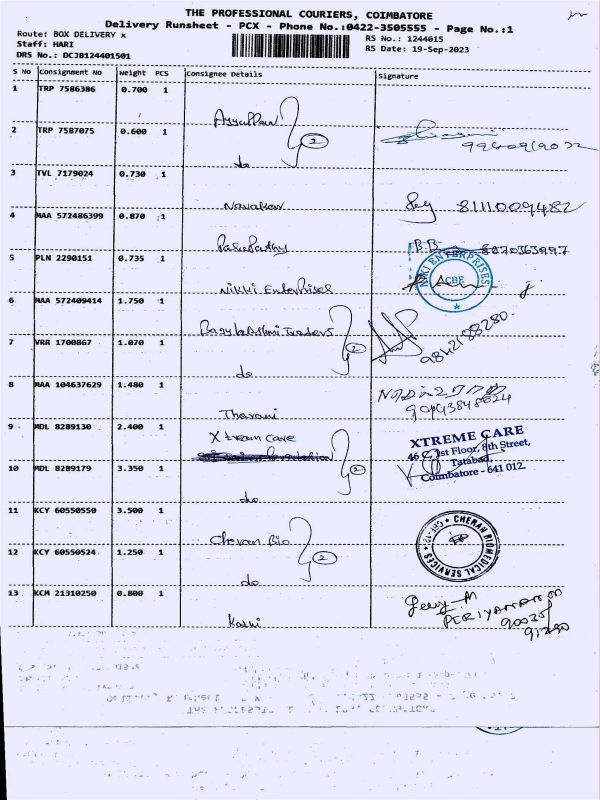 THE PROFESSIONAL COURIERS, COIMBATORE
Delivery Runsheet - PCX - Phone No.:0422-3505555 - Page No.:1
Route: BOX DELIVERY x
RS No.: 1244015
Staff: HARI
RS Date: 19-Sep-2023
DRS No.: DCJB124401501
S No Consignment No Weight PCS Consignee Details Signature
1 TRP 7586386 0.700 1
Ayyappan
2
2 TRP 7587075 0.600 1
do
3 TVL 7179024 0.730 1
8111009482
4 MAA 572486399 0.870 1
B.B
5 PLN 2290151 0.735 1
Nikhi Enterprises
NIKI ENTERPRISES
CBE
6 MAA 572409414 1.750 1
Traders
2
9842188280
7 VRR 1700867 1.070 1
do
8 MAA 104637629 1.480 1
Tharani
9 MDL 8289130 2.400 1
Xtream Care
XTREME CARE
46 C, 1st Floor, 8th Street,
Tatabad,
Coimbatore - 641 012.
10 MDL 8289179 3.350 1
2
do
11 KCY 60550550 3.500 1
Cheran Bio
2
CHERAN BIOMEDICAL SERVICES
12 KCY 60550524 1.250 1
do
13 KCM 21310250 0.800 1